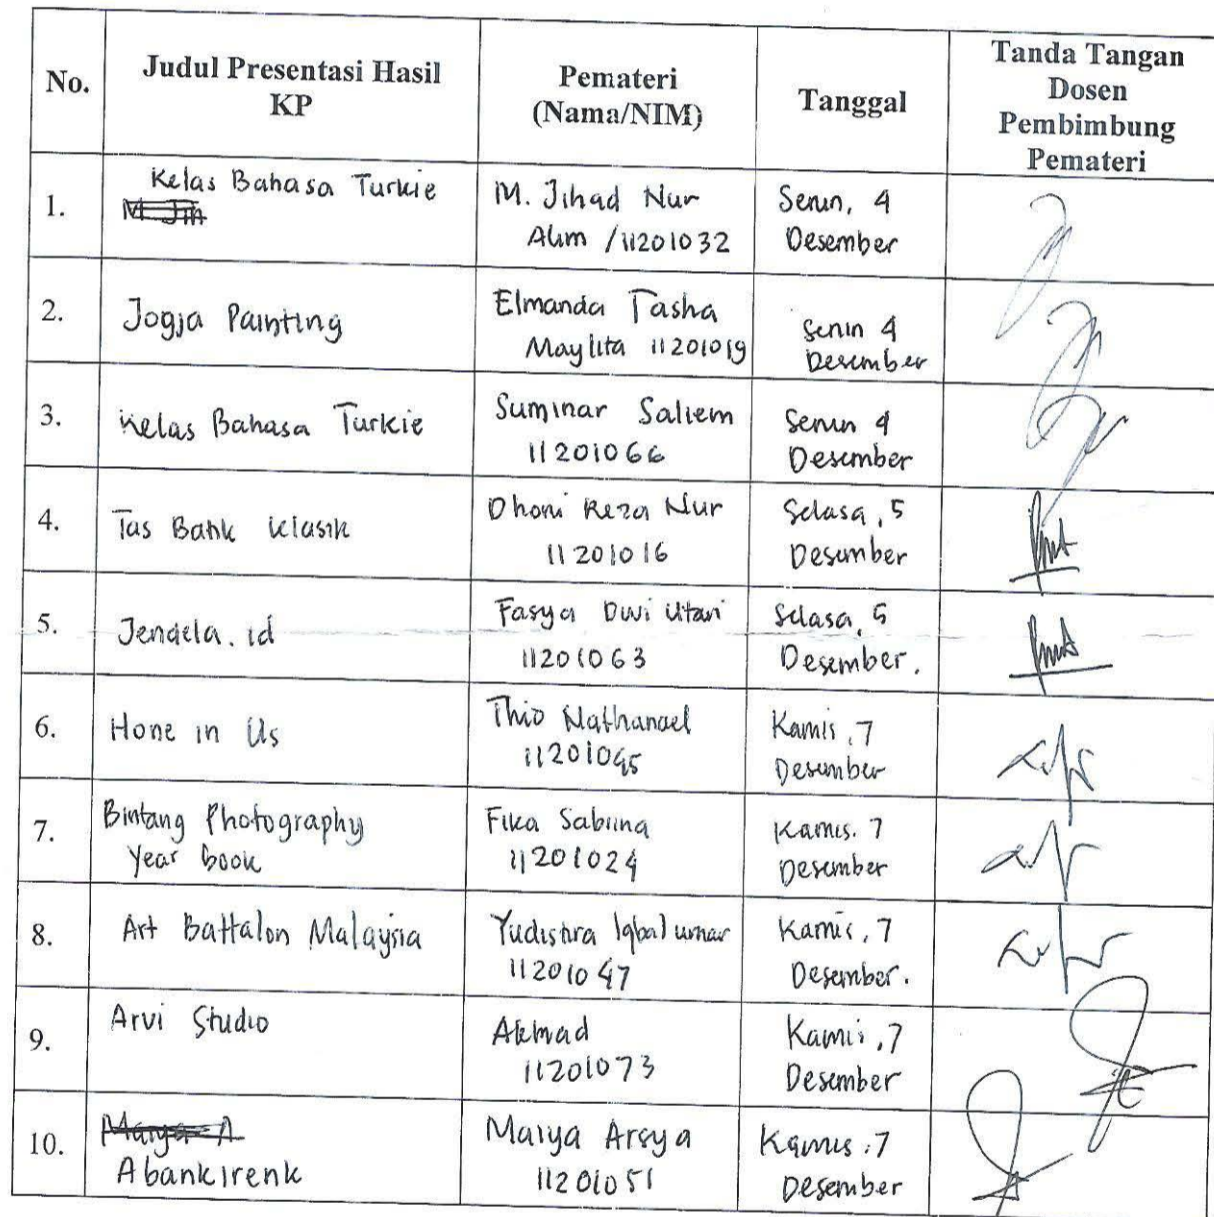 No.
Judul Presentasi Hasil
KP
Pemateri
(Nama/NIM)
Tanggal
Tanda Tangan
Dosen
Pembimbung
Pemateri
1.
Kelas Bahasa Turkie
M Jih
M. Jihad Nur
Alim /11201032
Senin, 4
Desember
2.
Jogja Painting
Elmanda Tasha
Maylita 11201019
Senin 4
Desember
3.
Kelas Bahasa Turkie
Suminar Saliem
11201066
Senin 4
Desember
4.
Tas Batik Klasik
Dhoni Reza Nur
11201016
Selasa, 5
Desember
5.
Jendela.id
Fasya Dwi Utari
11201063
Selasa, 5
Desember.
6.
Hone in Us
Thio Nathanael
11201045
Kamis, 7
Desember
7.
Bintang Photography
Year book
Fika Sabrina
11201024
Kamis. 7
Desember
8.
Art Battalon Malaysia
Yudistira Iqbal umar
11201047
Kamis, 7
Desember.
9.
Arvi Studio
Akhmad
11201073
Kamis, 7
Desember
10.
Maiya A
Abankirenk
Maiya Arsya
11201051
Kamis, 7
Desember